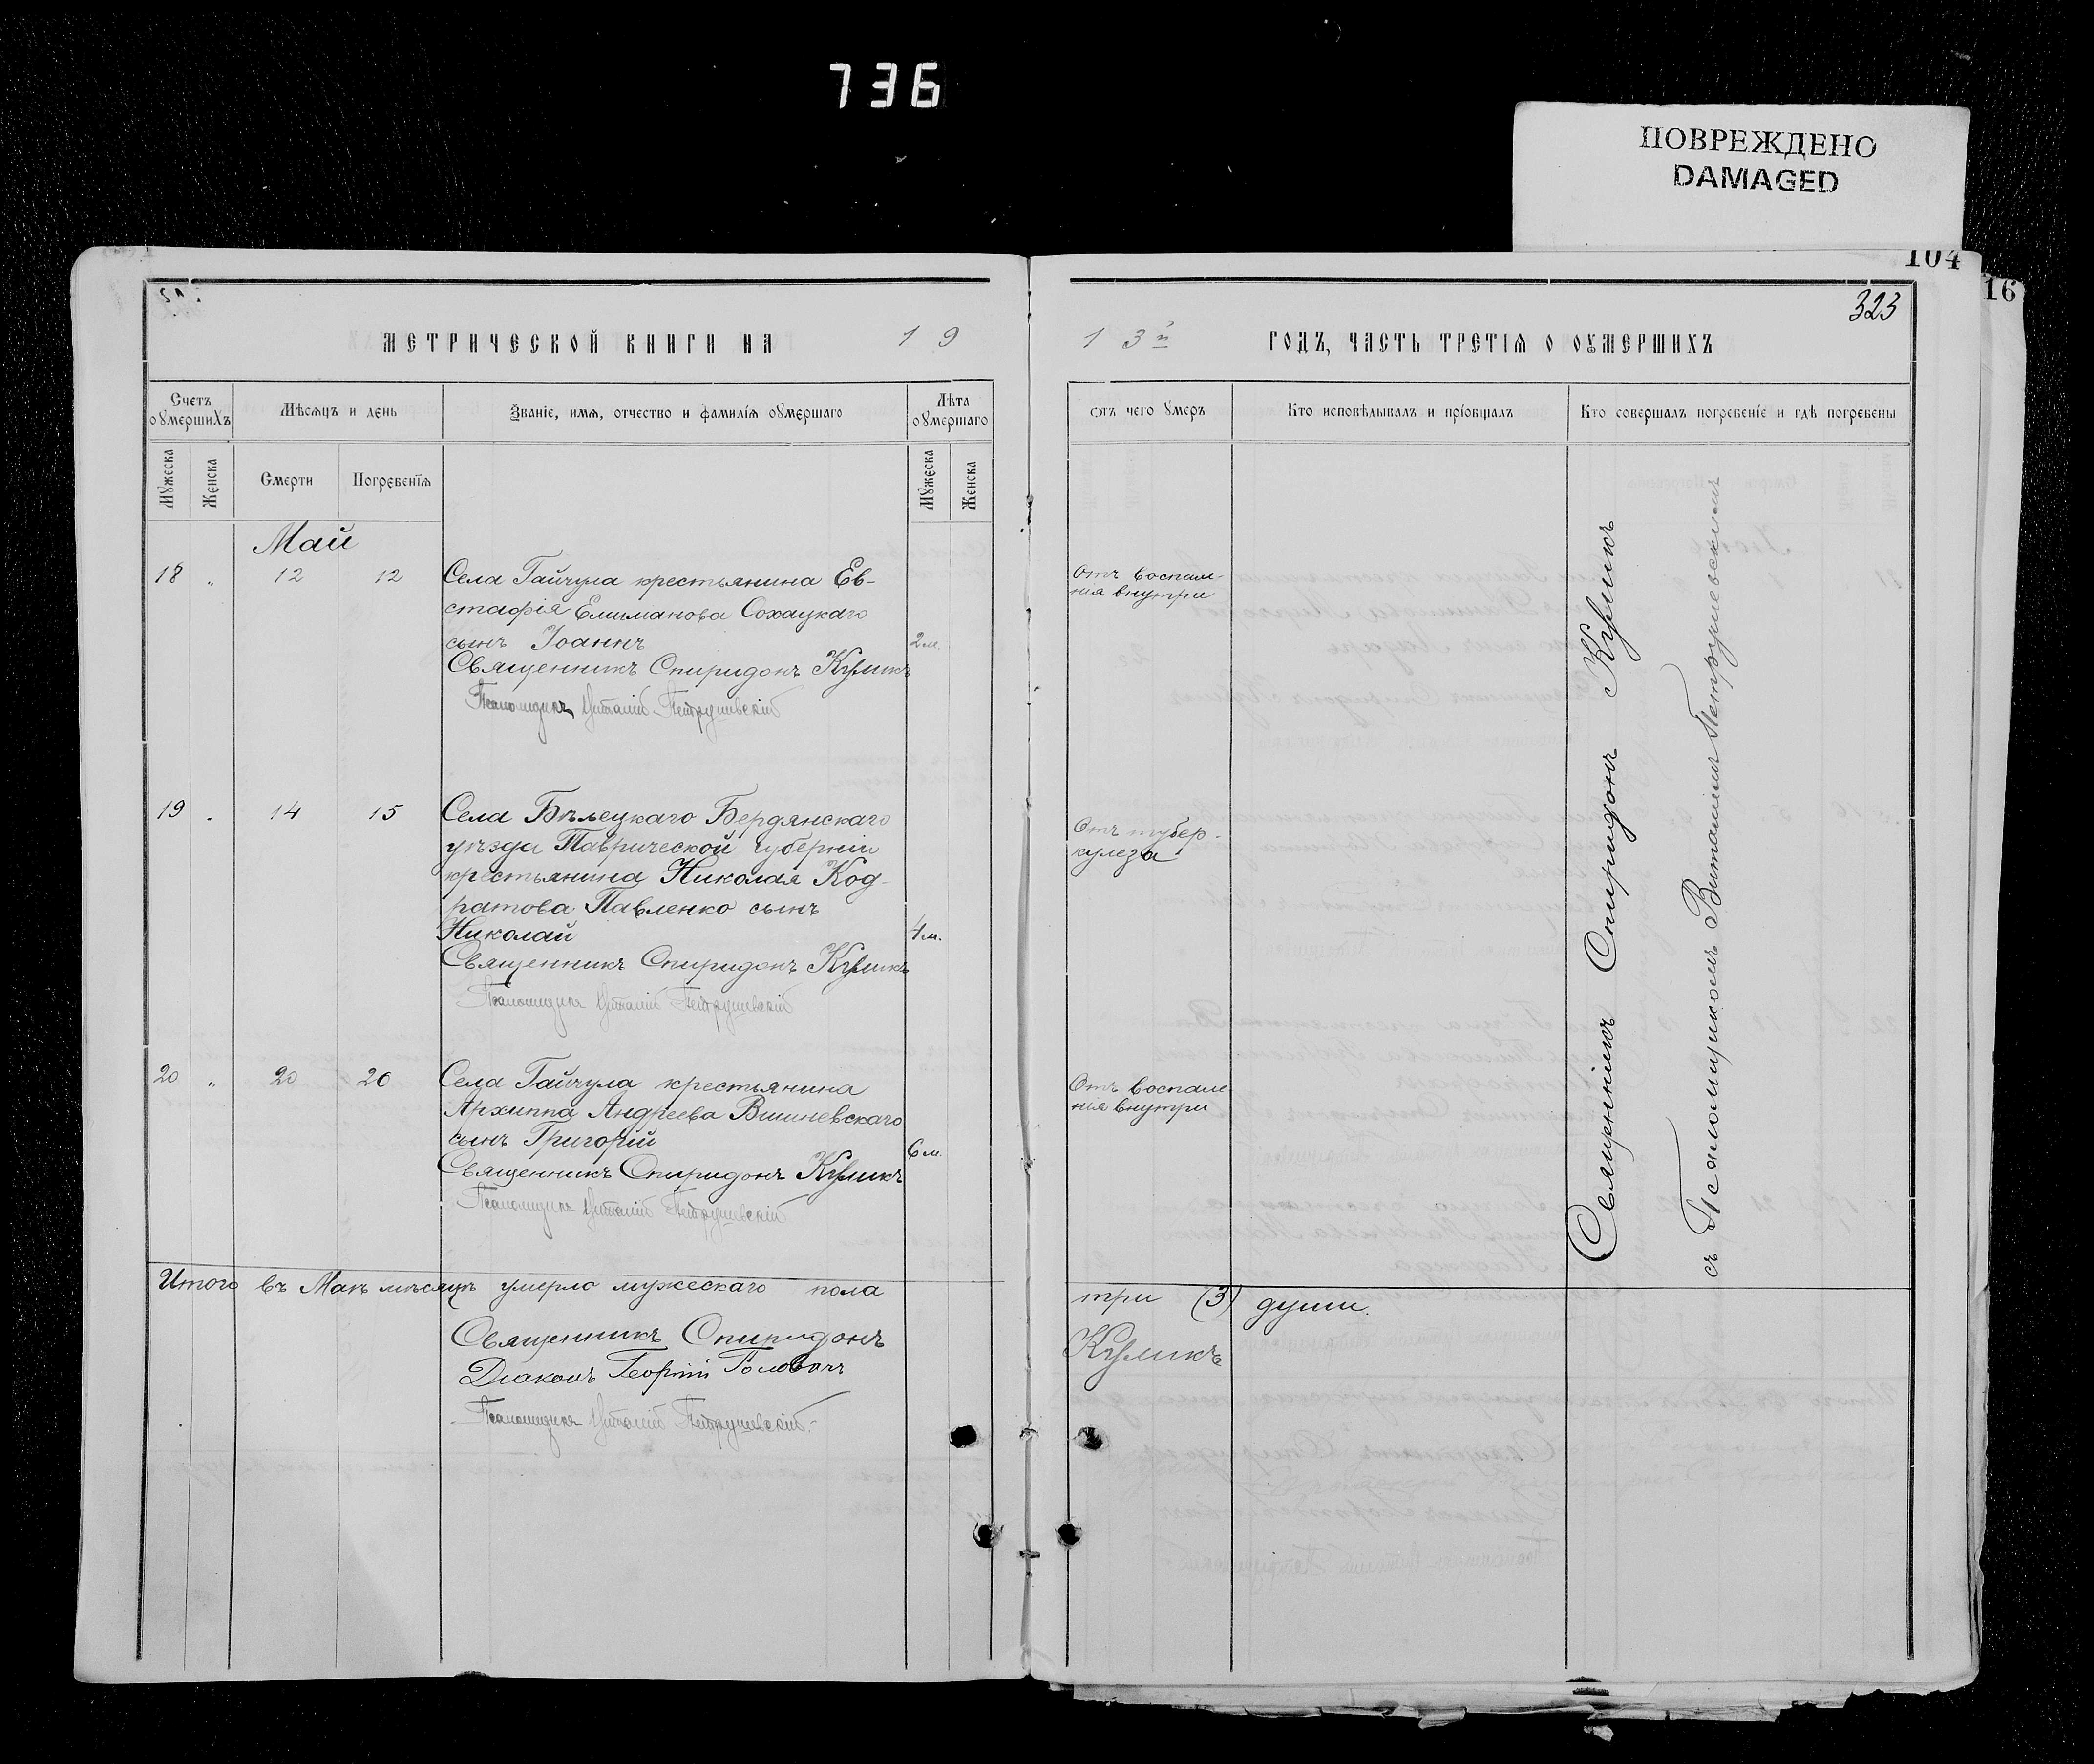 736
ПОВРЕЖДЕНО
DAMAGED
104
16
323
МЕТРИЧЕСКОЙ КНИГИ НА 19
13 годъ, часть третія о оумершихъ
Счетъ оумершихъ
Мѣсяцъ и день
Званіе, имя, отчество и фамилія оумершаго
Лѣта оумершаго
отъ чего умеръ
Кто исповѣдывалъ и пріобщалъ
Кто совершалъ погребеніе и гдѣ погребены
Мужеска
Женска
Смерти
Погребенія
Мужеска
Женска
Май
18 " 12 12 Села Гайчула крестьянина Ев-
стафія Елиманова Сохацкаго
сынъ Іоаннъ 2 м.
Священникъ Спиридонъ Куликъ
Псаломщикъ Виталій Петрушевскій
Отъ воспале-
нія внутри
19 . 14 15 Села Бѣлецкаго Бердянскаго
уѣзда Таврической губерніи
крестьянина Николая Код-
ратова Павленко сынъ
Николай 4 м.
Священникъ Спиридонъ Куликъ
Псаломщикъ Виталій Петрушевскій
Отъ тубер-
кулеза
20 " 20 20 Села Гайчула крестьянина
Архиппа Андреева Вишневскаго
сынъ Григорій 6 м.
Священникъ Спиридонъ Куликъ
Псаломщикъ Виталій Петрушевскій
Отъ воспале
нія внутри
Священникъ Спиридонъ Куликъ
съ Псаломщикомъ Виталіемъ Петрушевскимъ
Итого въ Маѣ мѣсяцѣ умерло мужескаго пола три (3) души.
Священникъ Спиридонъ Куликъ
Діаконъ Георгій Головань
Псаломщикъ Виталій Петрушевскій